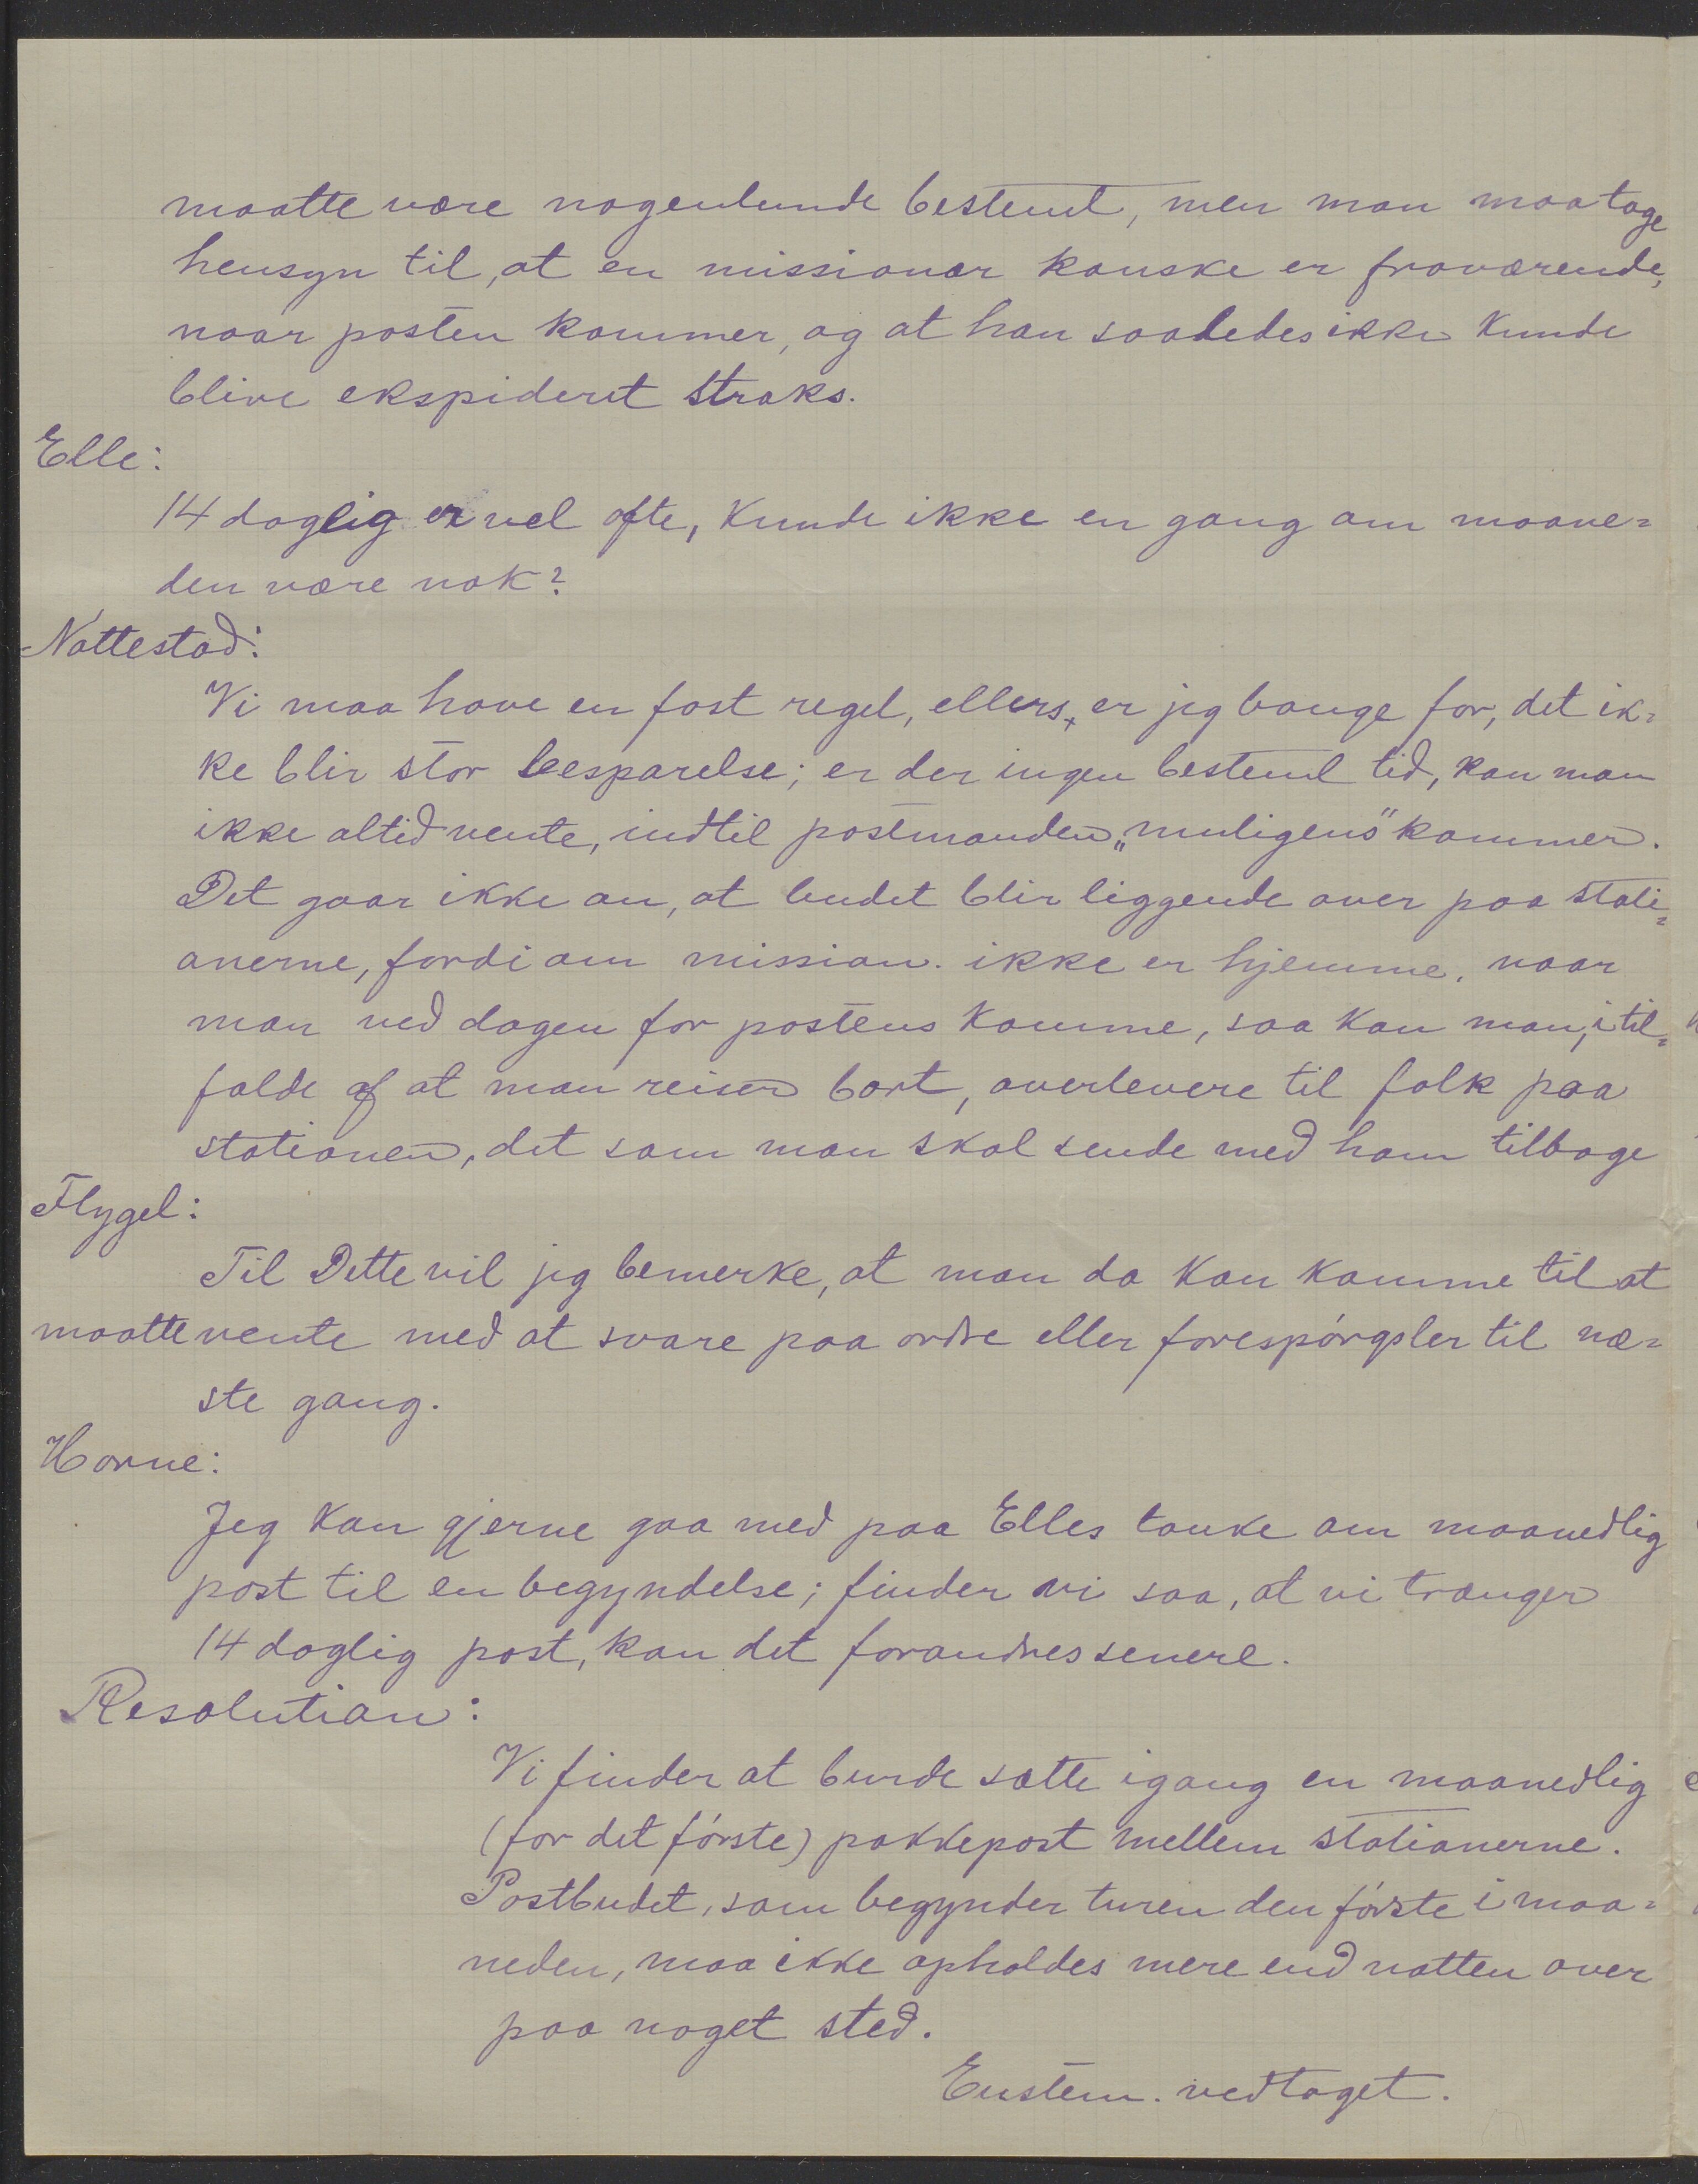 maatte være nogenlunde bestemt, men man maa tage
hensyn til, at en missionær kanske er fraværende,
naar posten kommer, og at han saaledes ikke kunde
blive ekspideret straks.
Elle:
14 daglig er vel ofte, kunde ikke en gang om maane=
den være nok?
Nattestad:
Vi maa have en fast regel, ellers, er jeg bange for, det ik=
ke blir stor besparelse; er der ingen bestemt tid, kan man
ikke altid vente, indtil postmanden „muligens" kommer.
Det gaar ikke an, at budet blir liggende over paa stati=
onerne, fordi om mission. ikke er hjemme, naar
man ved dagen for postens komme, saa kan man, i til=
fælde af at man reiser bort, overlevere til folk paa
stationen, det som man skal sende med ham tilbage
Flygel:
Til Dette vil jeg bemerke, at man da kan komme til at
maatte vente med at svare paa ordre eller forespørgsler til næ=
ste gang.
Horne:
Jeg kan gjerne gaa med paa Elles tanke om maanedlig
post til en begyndelse; finder vi saa, at vi trænger
14 daglig post, kan det forandres senere.
Resolution:
Vi finder at burde sætte igang en maanedlig
(for det første) pakkepost mellem stationerne.
Postbudet, som begynder turen den første i maa=
neden, maa ikke opholdes mere end natten over
paa noget sted.
Enstem. vedtaget.